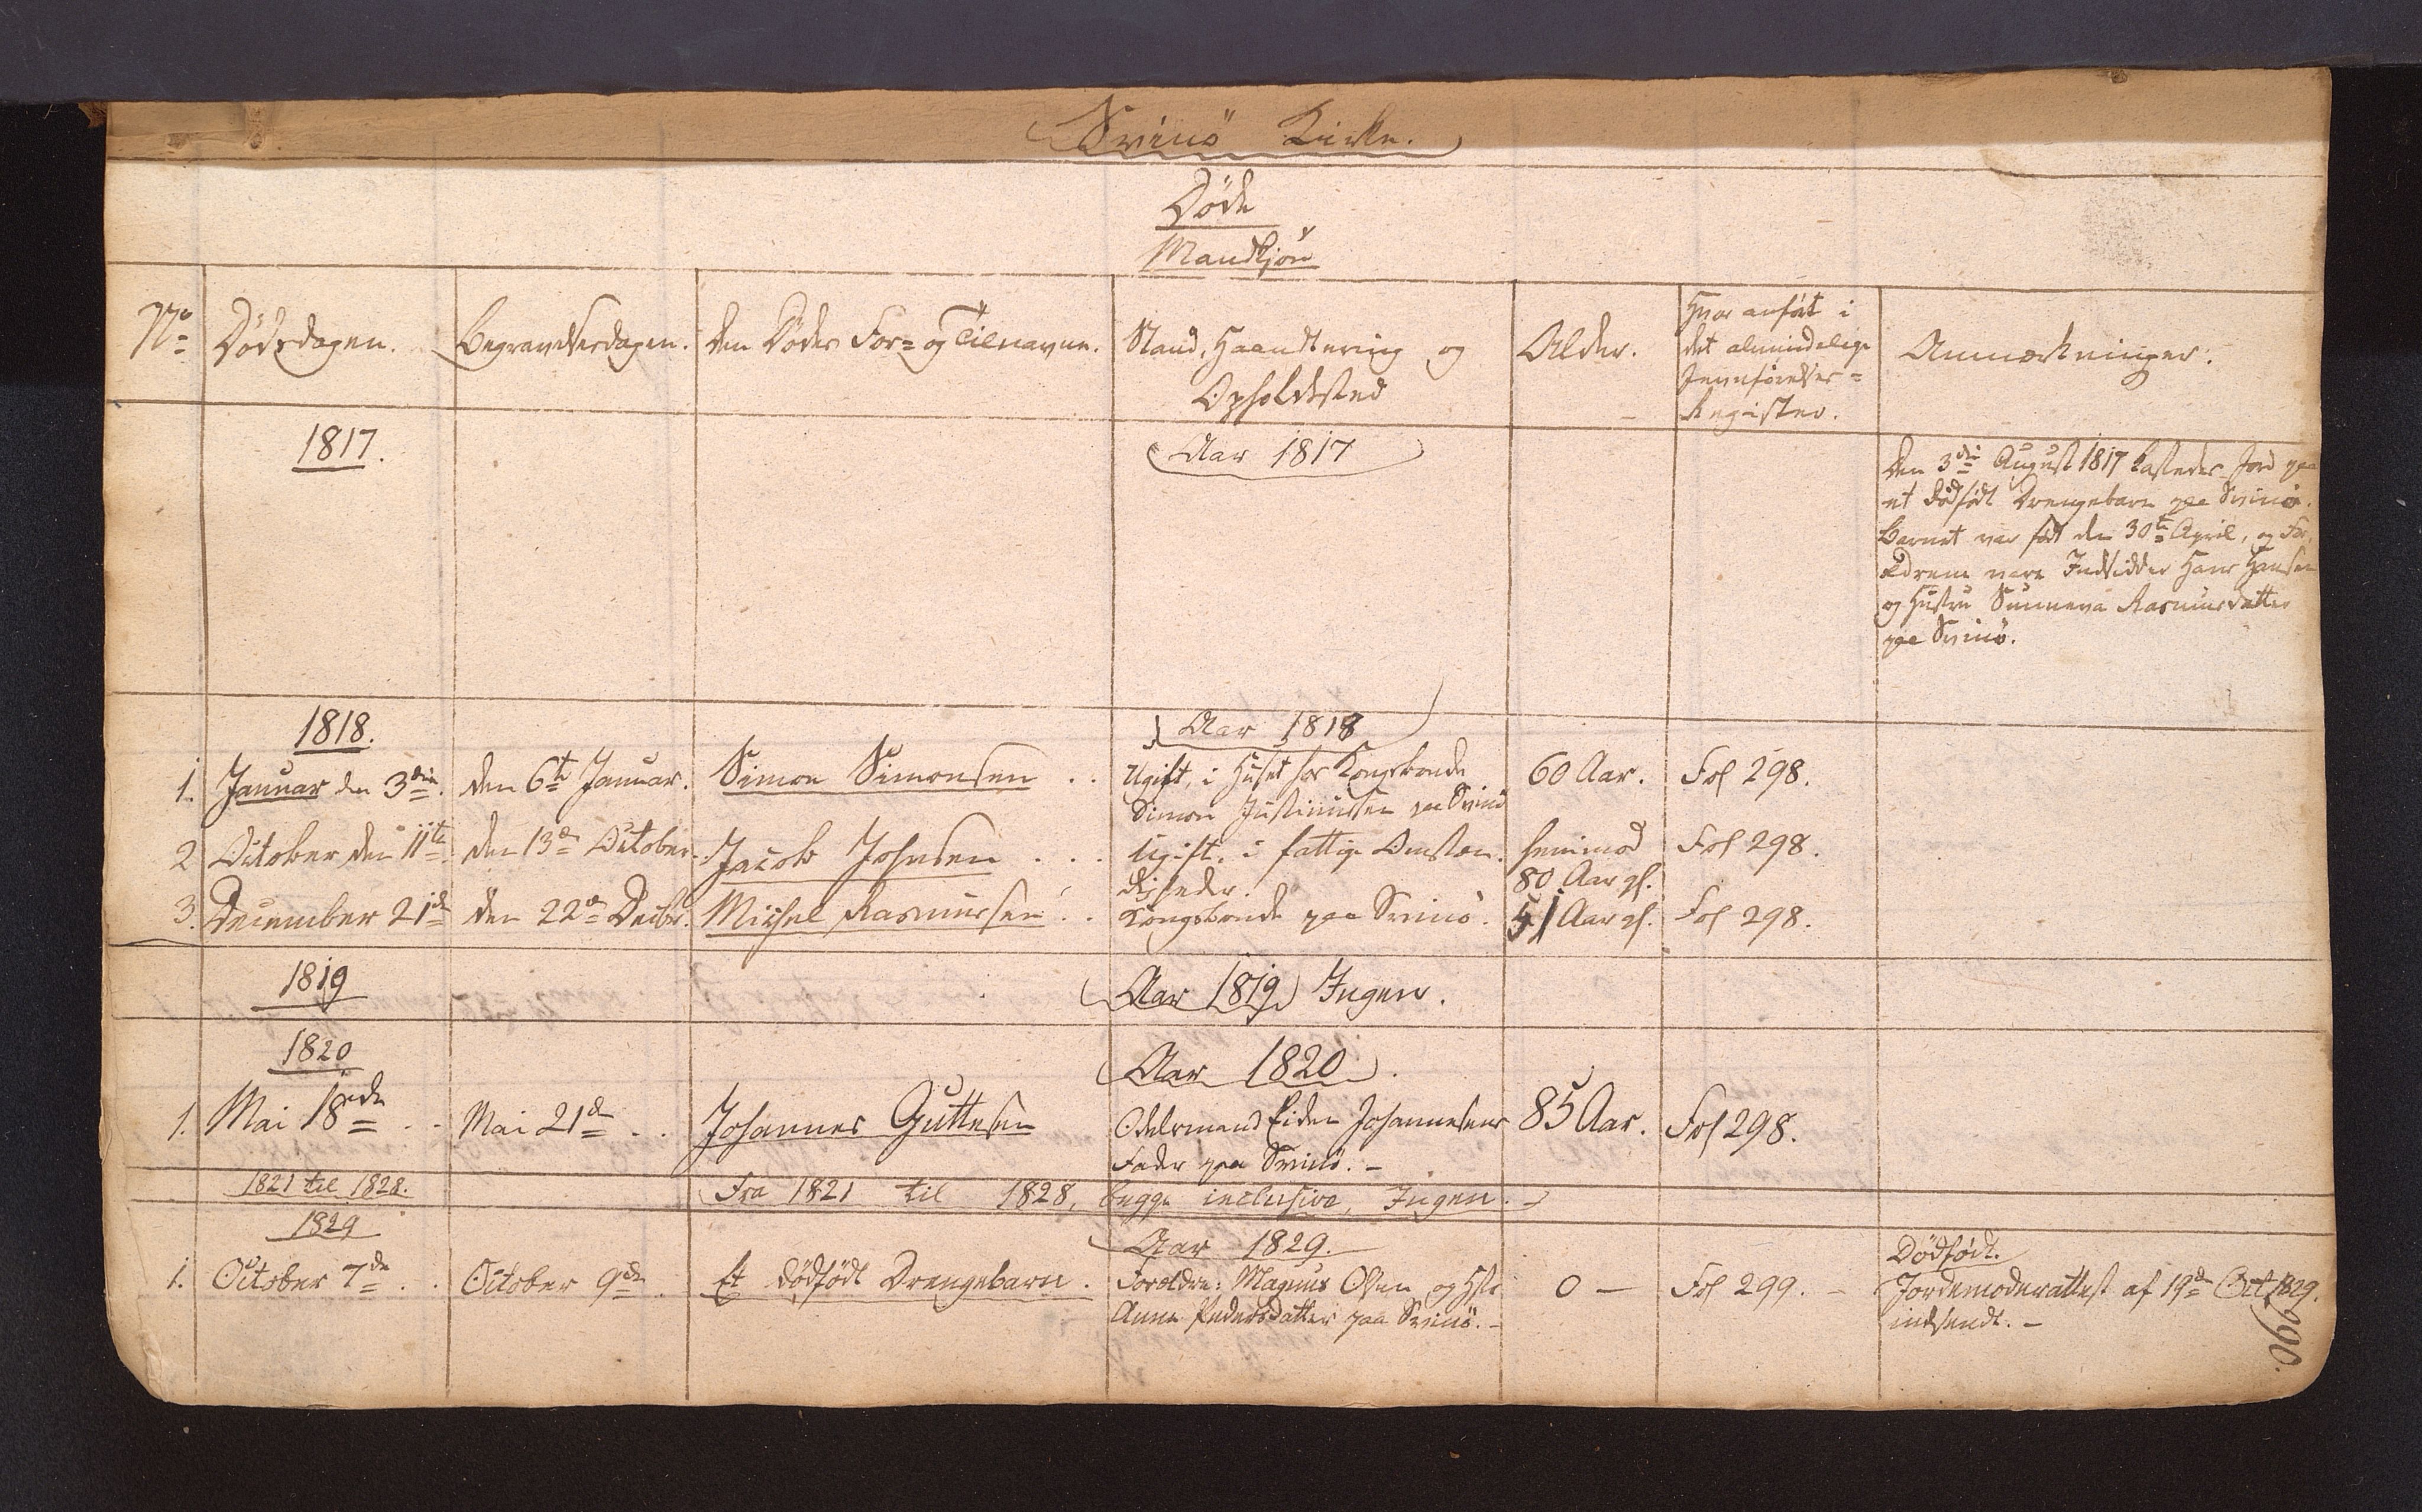 Svinö Kirke.
Döde
Mandkjön
No Dödsdagen. Begravelsesdagen. Den Dödes For= og Tilnavne. Stand, Haandtering og Opholdssted Alder. Hvor anfört i
det almindelige
Jevnförelses=
Register. Anmærkninger.
1817. Aar 1817
Den 3die August 1817 kastedes Jord paa
et dödfödt Drengebarn paa Svinö.
Barnet var födt den 30te April, og For,
ældrene vare Indsidder Hans Hansen
og Hustru Sunneva Rasmusdatter
paa Svinö.
1818. Aar 1818
1. Januar den 3die. den 6te Januar. Simon Simonsen . . Ugift, i Huset hos Kongsbonde
Simon Justinussen paa Svinö 60 Aar. Fol 298.
2 October den 11te den 13de October. Jacob Johnsen . . . Ugift, i fattige Omstæn-
digheder. henimod
80 Aar gl. Fol 298.
3. December 21de den 22de Decbr. Michel Rasmussen . . Kongsbonde paa Svinö. 51 Aar gl. Fol 298.
1819 Aar 1819 Ingen.
1820 Aar 1820.
1. Mai 18de . . Mai 21de . . Johannes Guttesen Odelsmand Eiden Johannesens
Fader paa Svinö. - 85 Aar. Fol 298.
1821 til 1828. Fra 1821 til 1828, begge inclusive, Ingen. -
1829 Aar 1829.
1. October 7de . . October 9de . Et dödfödt Drengebarn. Forældre: Magnus Olsen og Hstr
Anna Pedersdatter paa Svinö. - 0 — Fol 299. - Dödfödt.
Jordemoderattest af 19de Oct 1829.
indsendt. -